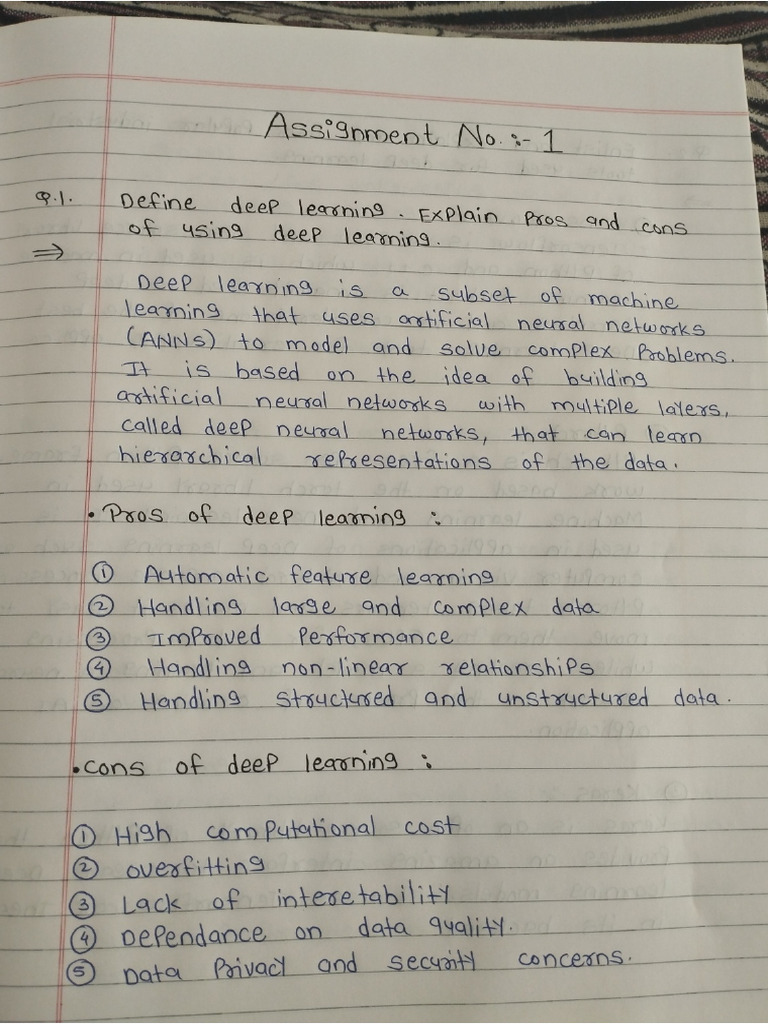 Assignment No. :- 1
Q.1. Define deep learning. Explain pros and cons
of using deep learning.
⇒
Deep learning is a subset of machine
learning that uses artificial neural networks
(ANNs) to model and solve complex problems.
It is based on the idea of building
artificial neural networks with multiple layers,
called deep neural networks, that can learn
hierarchical representations of the data.
• Pros of deep learning :
① Automatic feature learning
② Handling large and complex data
③ Improved performance
④ Handling non-linear relationships
⑤ Handling structured and unstructured data.
• cons of deep learning :
① High computational cost
② overfitting
③ Lack of interetability
④ Dependance on data quality.
⑤ Data privacy and security concerns.